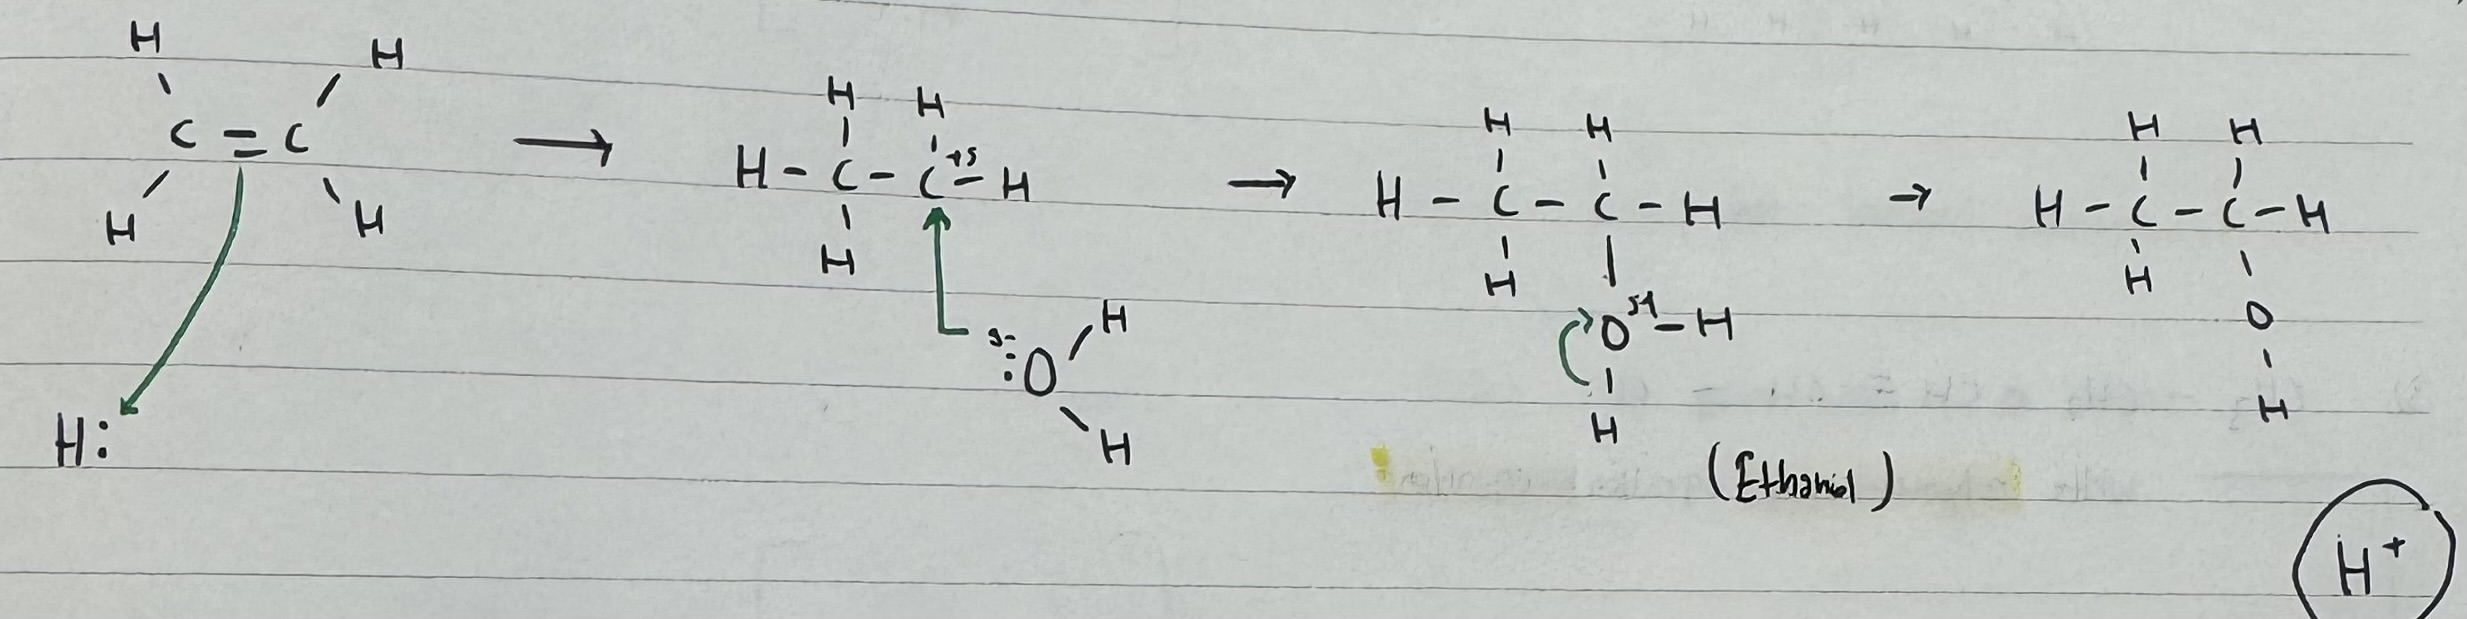 H H H H H H H H
C = C → H - C - C +s - H → H - C - C - H → H - C - C - H
H H H H H
H: s- :O H O s+ - H O
H H H
(Ethanol)
H+